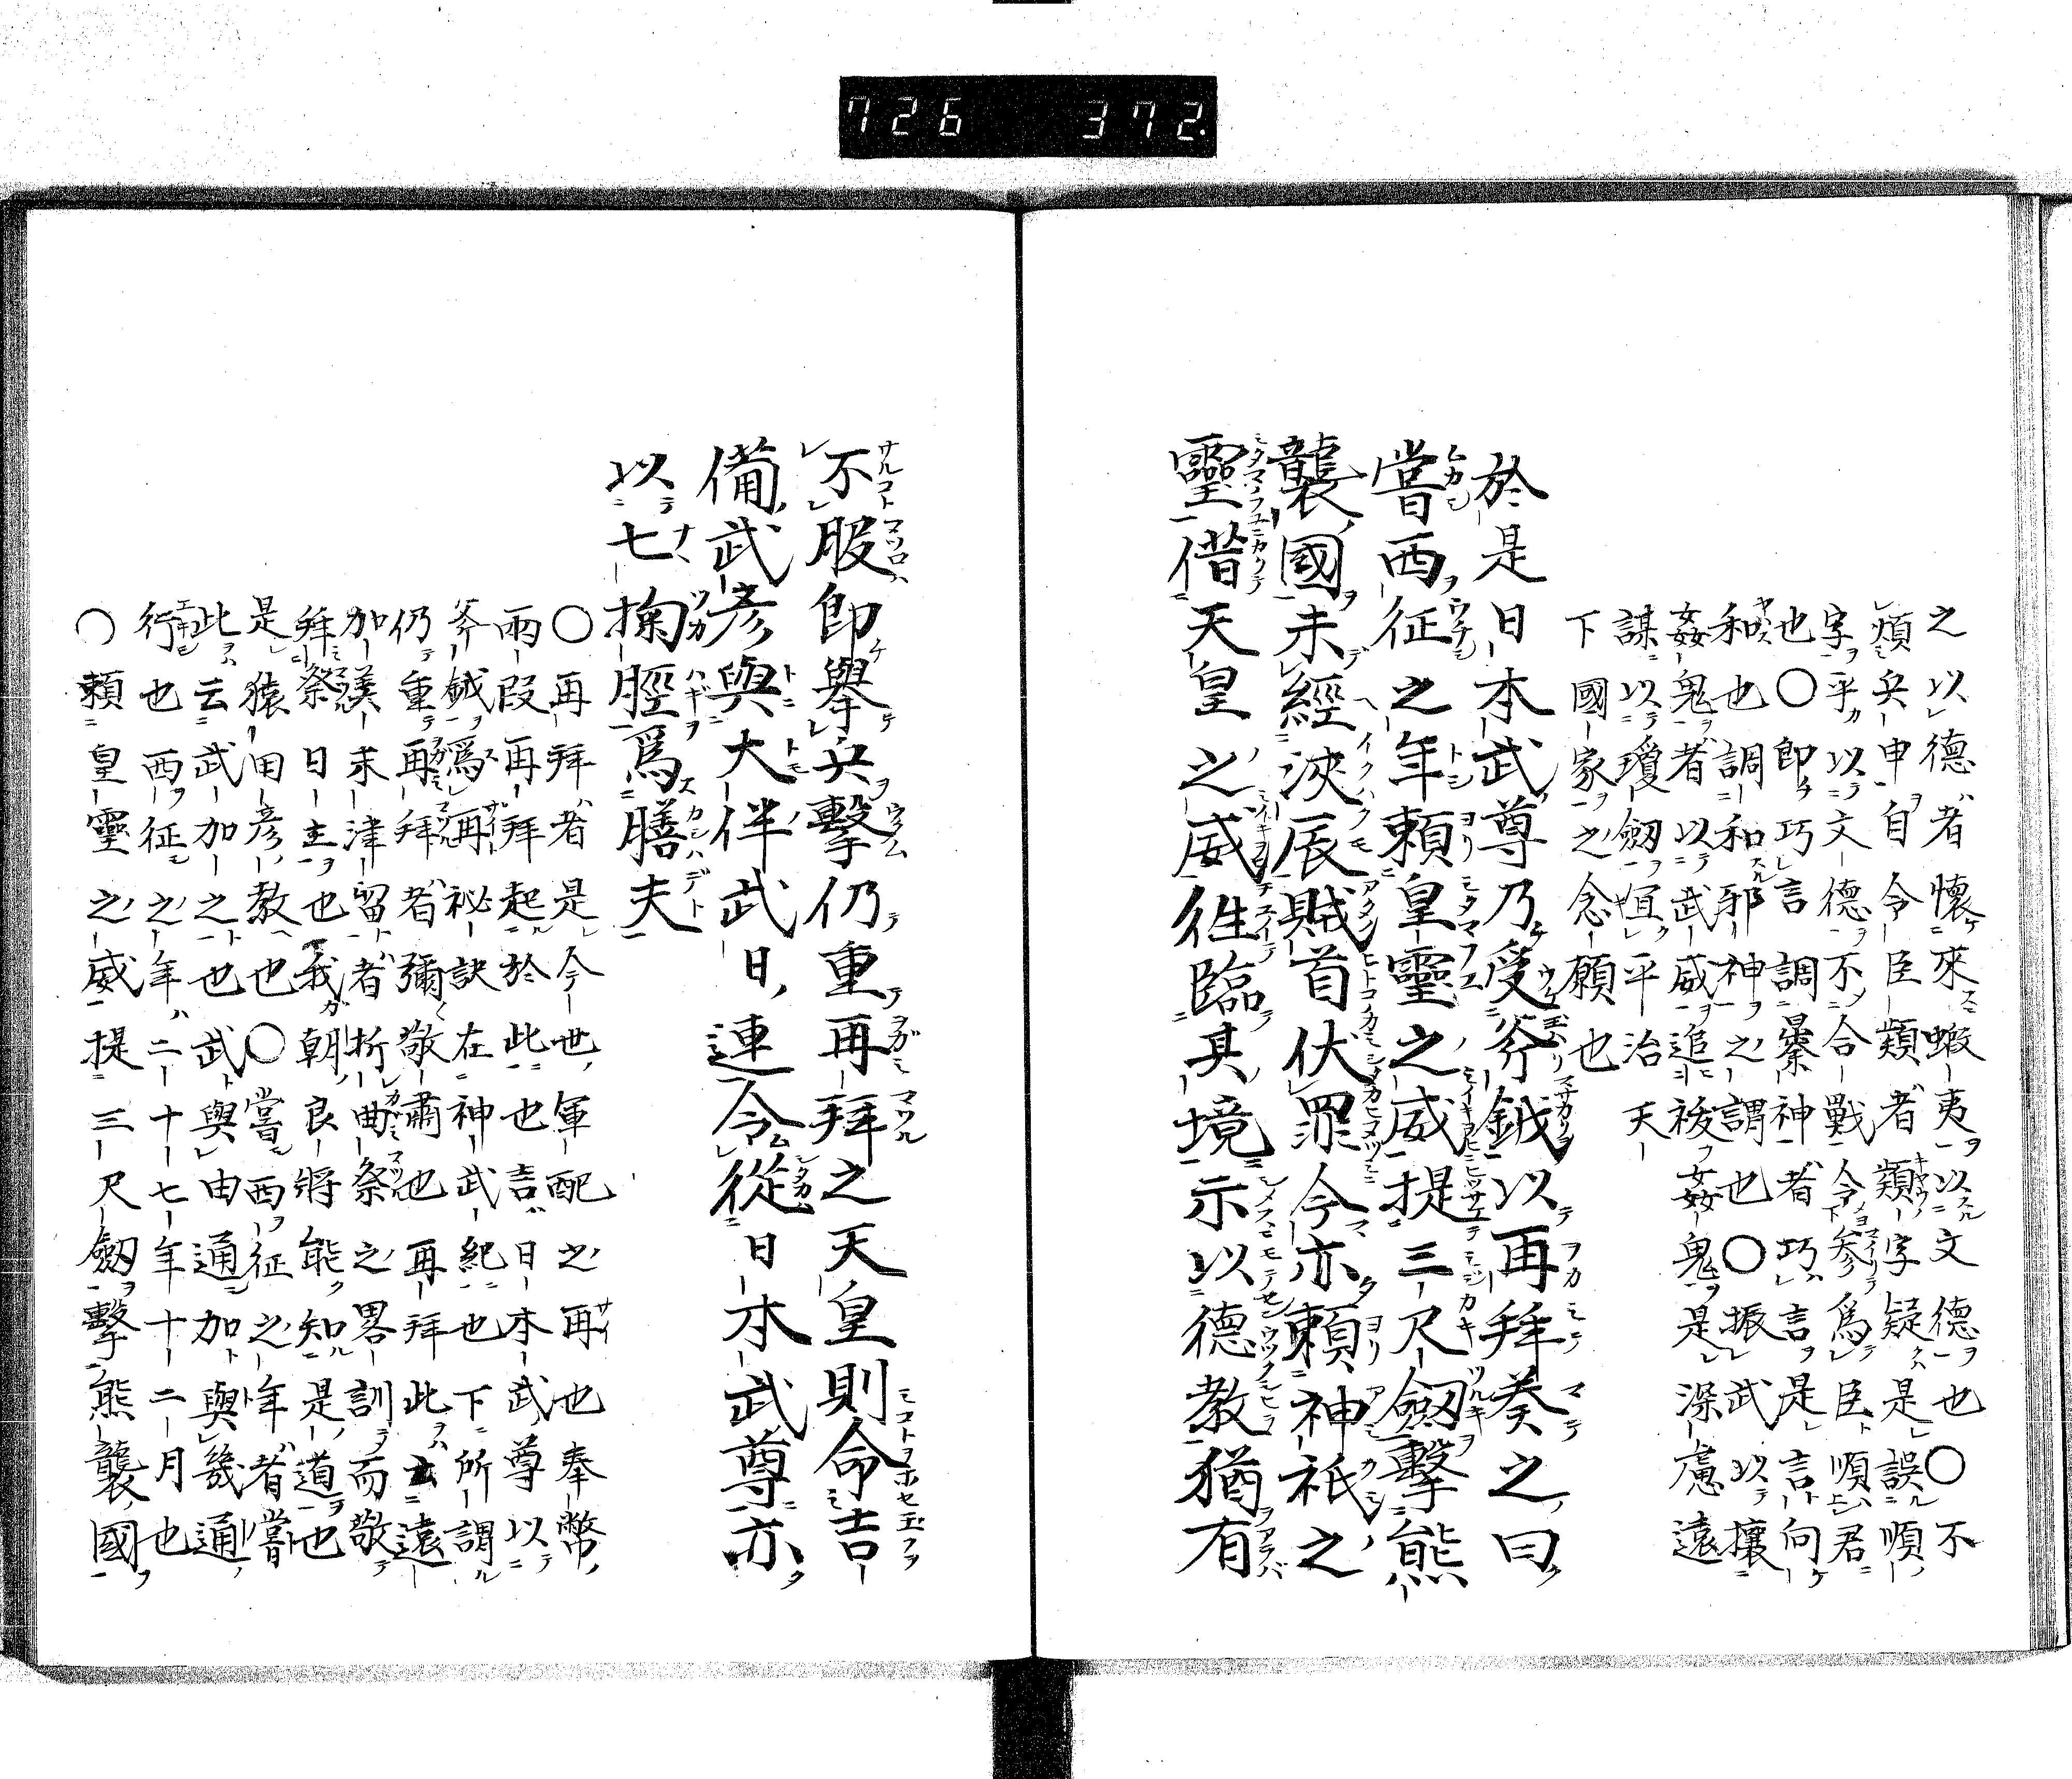 726 372.
之以德者懷來蝦夷以文德也〇不
煩兵申自令臣類者類字疑是誤順
字乎以文德不合戰令參爲臣順君
也〇即巧言調暴神者巧言是言向
和也調和邪神之謂也〇振武以攘
姦鬼者以武威追祓姦鬼是深慮遠
謀以瓊劒恒平治天
下國家之念願也
於是日本武尊乃受斧鉞以再拜奏之曰
嘗西征之年賴皇靈之威提三尺劒擊熊
襲國未經浹辰賊首伏罪今亦賴神祇之
靈借天皇之威徃臨其境示以德教猶有
不服即舉兵擊仍重再拜之天皇則命吉
備武彥與大伴武日連令從日本武尊亦
以七掬脛爲膳夫
〇再拜者是今世軍配之再也奉幣
兩段再拜起於此也言日本武尊以
斧鉞爲再祕訣在神武紀也下所謂
仍重再拜者彌敬肅也再拜此云遠
加美末津留者折曲祭之畧訓而敬
拜祭日主也我朝良將能知是道也
是猿田彥教也〇嘗西征之年者嘗
此云武加之也武與由通加與幾通
行也西征之年二十七年十二月也
〇賴皇靈之威提三尺劒擊熊襲國